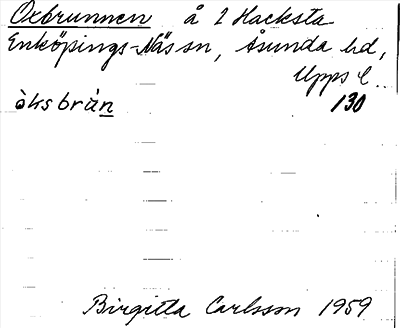 Oxbrunnen å 1 Hacksta
Enköpings-Näs sn, Åsunda hd,
Upps l.
òksbrùn̲ 130
Birgitta Carlsson 1959